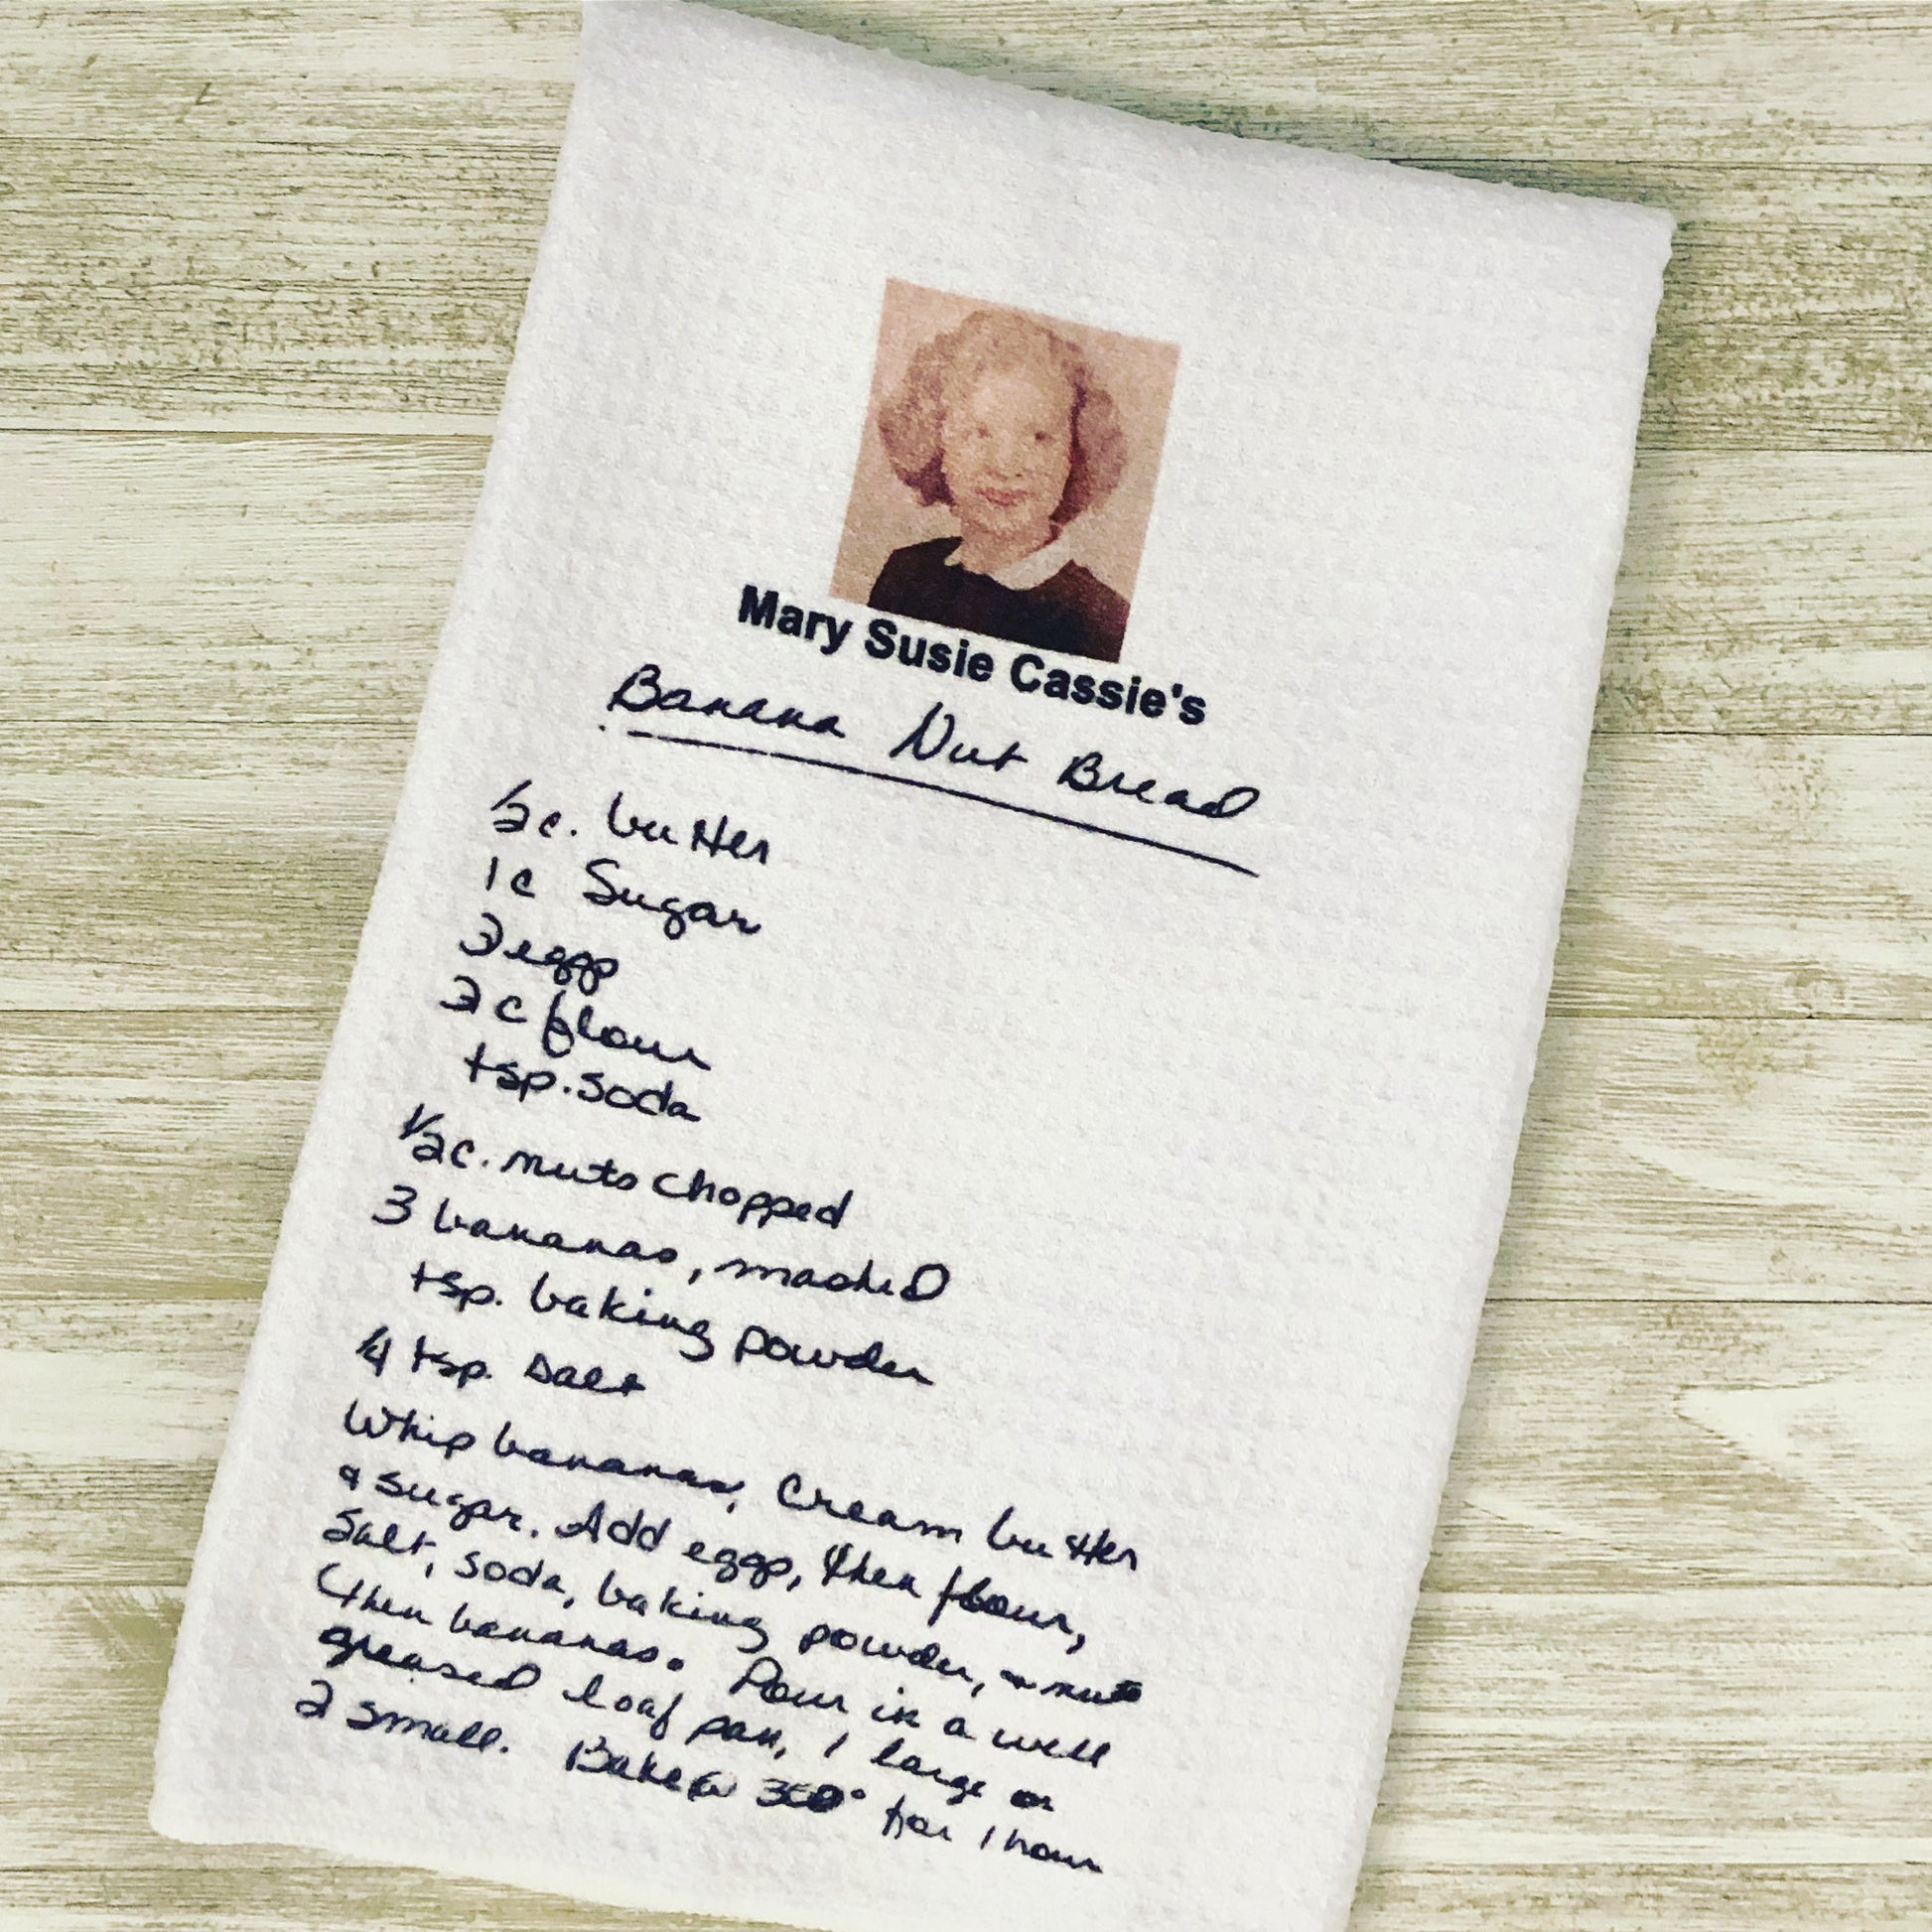 Mary Susie Cassie's
Banana Nut Bread
1/2 c. butter
1 c Sugar
3 eggs
2 c flour
tsp. soda
1/2 c. nuts chopped
3 bananas, mashed
tsp. baking powder
1/4 tsp. salt
Whip bananas, Cream butter
& sugar. Add eggs, then flour,
Salt, soda, baking powder, & nuts
then bananas. Pour in a well
greased loaf pan, 1 large or
2 small. Bake @ 350° for 1 hour